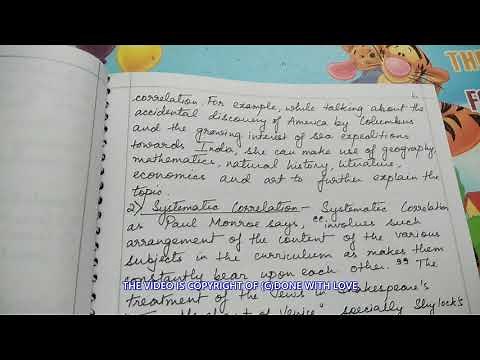 correlation. For example, while talking about the
accidental discovery of America by Columbus
and the growing interest of sea expeditions
towards India, she can make use of geography,
mathematics, natural history, literature,
economics and art to further explain the
topic.
2) Systematic Correlation - Systematic Correlation
as Paul Monroe says, "involves such
arrangement of the content of the various
subjects in the curriculum as makes them
constantly bear upon each other." The
treatment of the Jews in Shakespeare's
Venice", specially Shylock's
THE VIDEO IS COPYRIGHT OF (C)DONE WITH LOVE
TH
F